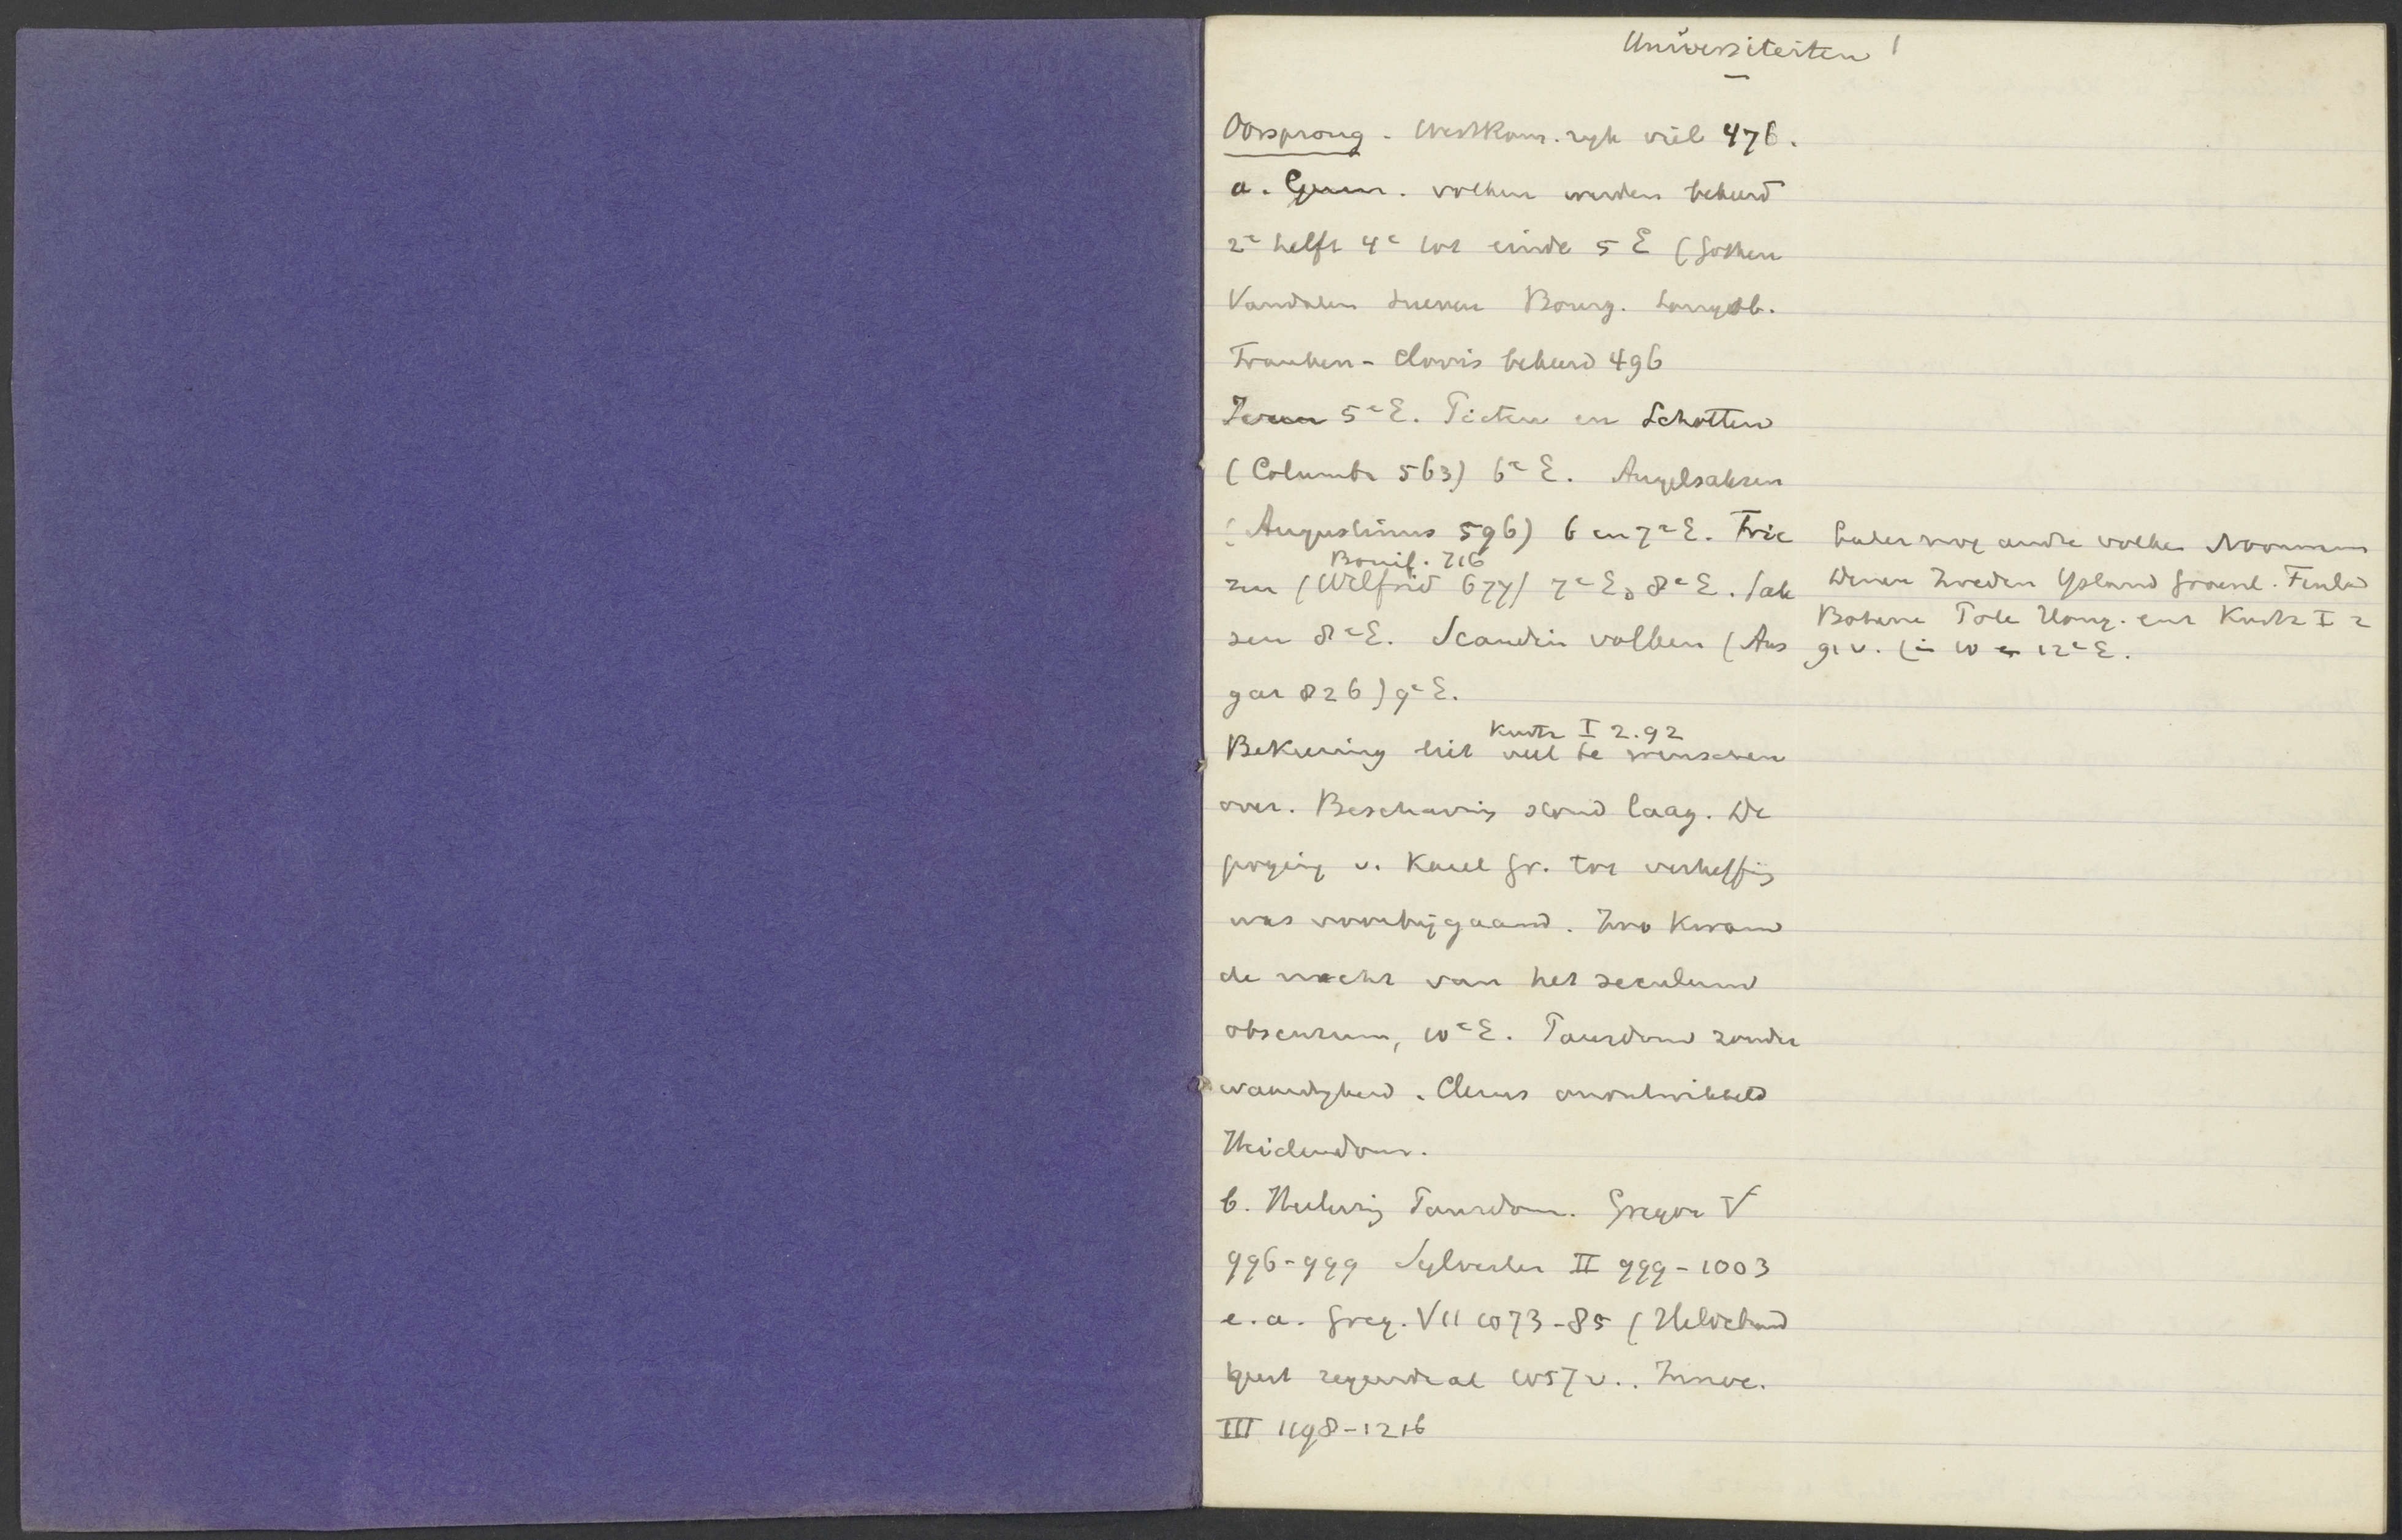 Universiteiten 1
Oorsprong - WestRom. ryk viel 476.
a. Germ. volken werden bekeerd
2e helft 4e tot einde 5 E (Gothen
Vandalen Sueven Bourg. Langob.
Franken - Clovis bekeerd 496
Ieren 5e E. Picten en Schotten
(Columba 563) 6e E. Angelsaksen
(Augustinus 596) 6 en 7e E. Frie
Bonif. 716
zen (Wilfrid 677) 7e E, 8e E. Sak
sen 8e E. Scandin volken (Ans
gar 826) 9e E.
later nog andre volken Noormann
Denen Zweden Ysland Groenl. Finland
Boheme Pole Hong. enz Kurtz I 2
91 v. (in 10 en 12e E.
Kurtz I 2.92
Bekeering liet veel te wenschen
over. Beschaving stond laag. De
poging v. Karel Gr. tot verheffing
was voorbijgaand. Zoo kwam
de nacht van het seculum
obscurum, 10e E. Pausdom zonder
waardigheid. Clerus onontwikkeld
Heidendom.
b. Heleving Pausdom. Gregor V
996-999 Sylvester II 999-1003
e.a. Greg. VII 1073-85 (Hildebrand
geest regeerde al 1057 v.. Innoc.
III 1198-1216